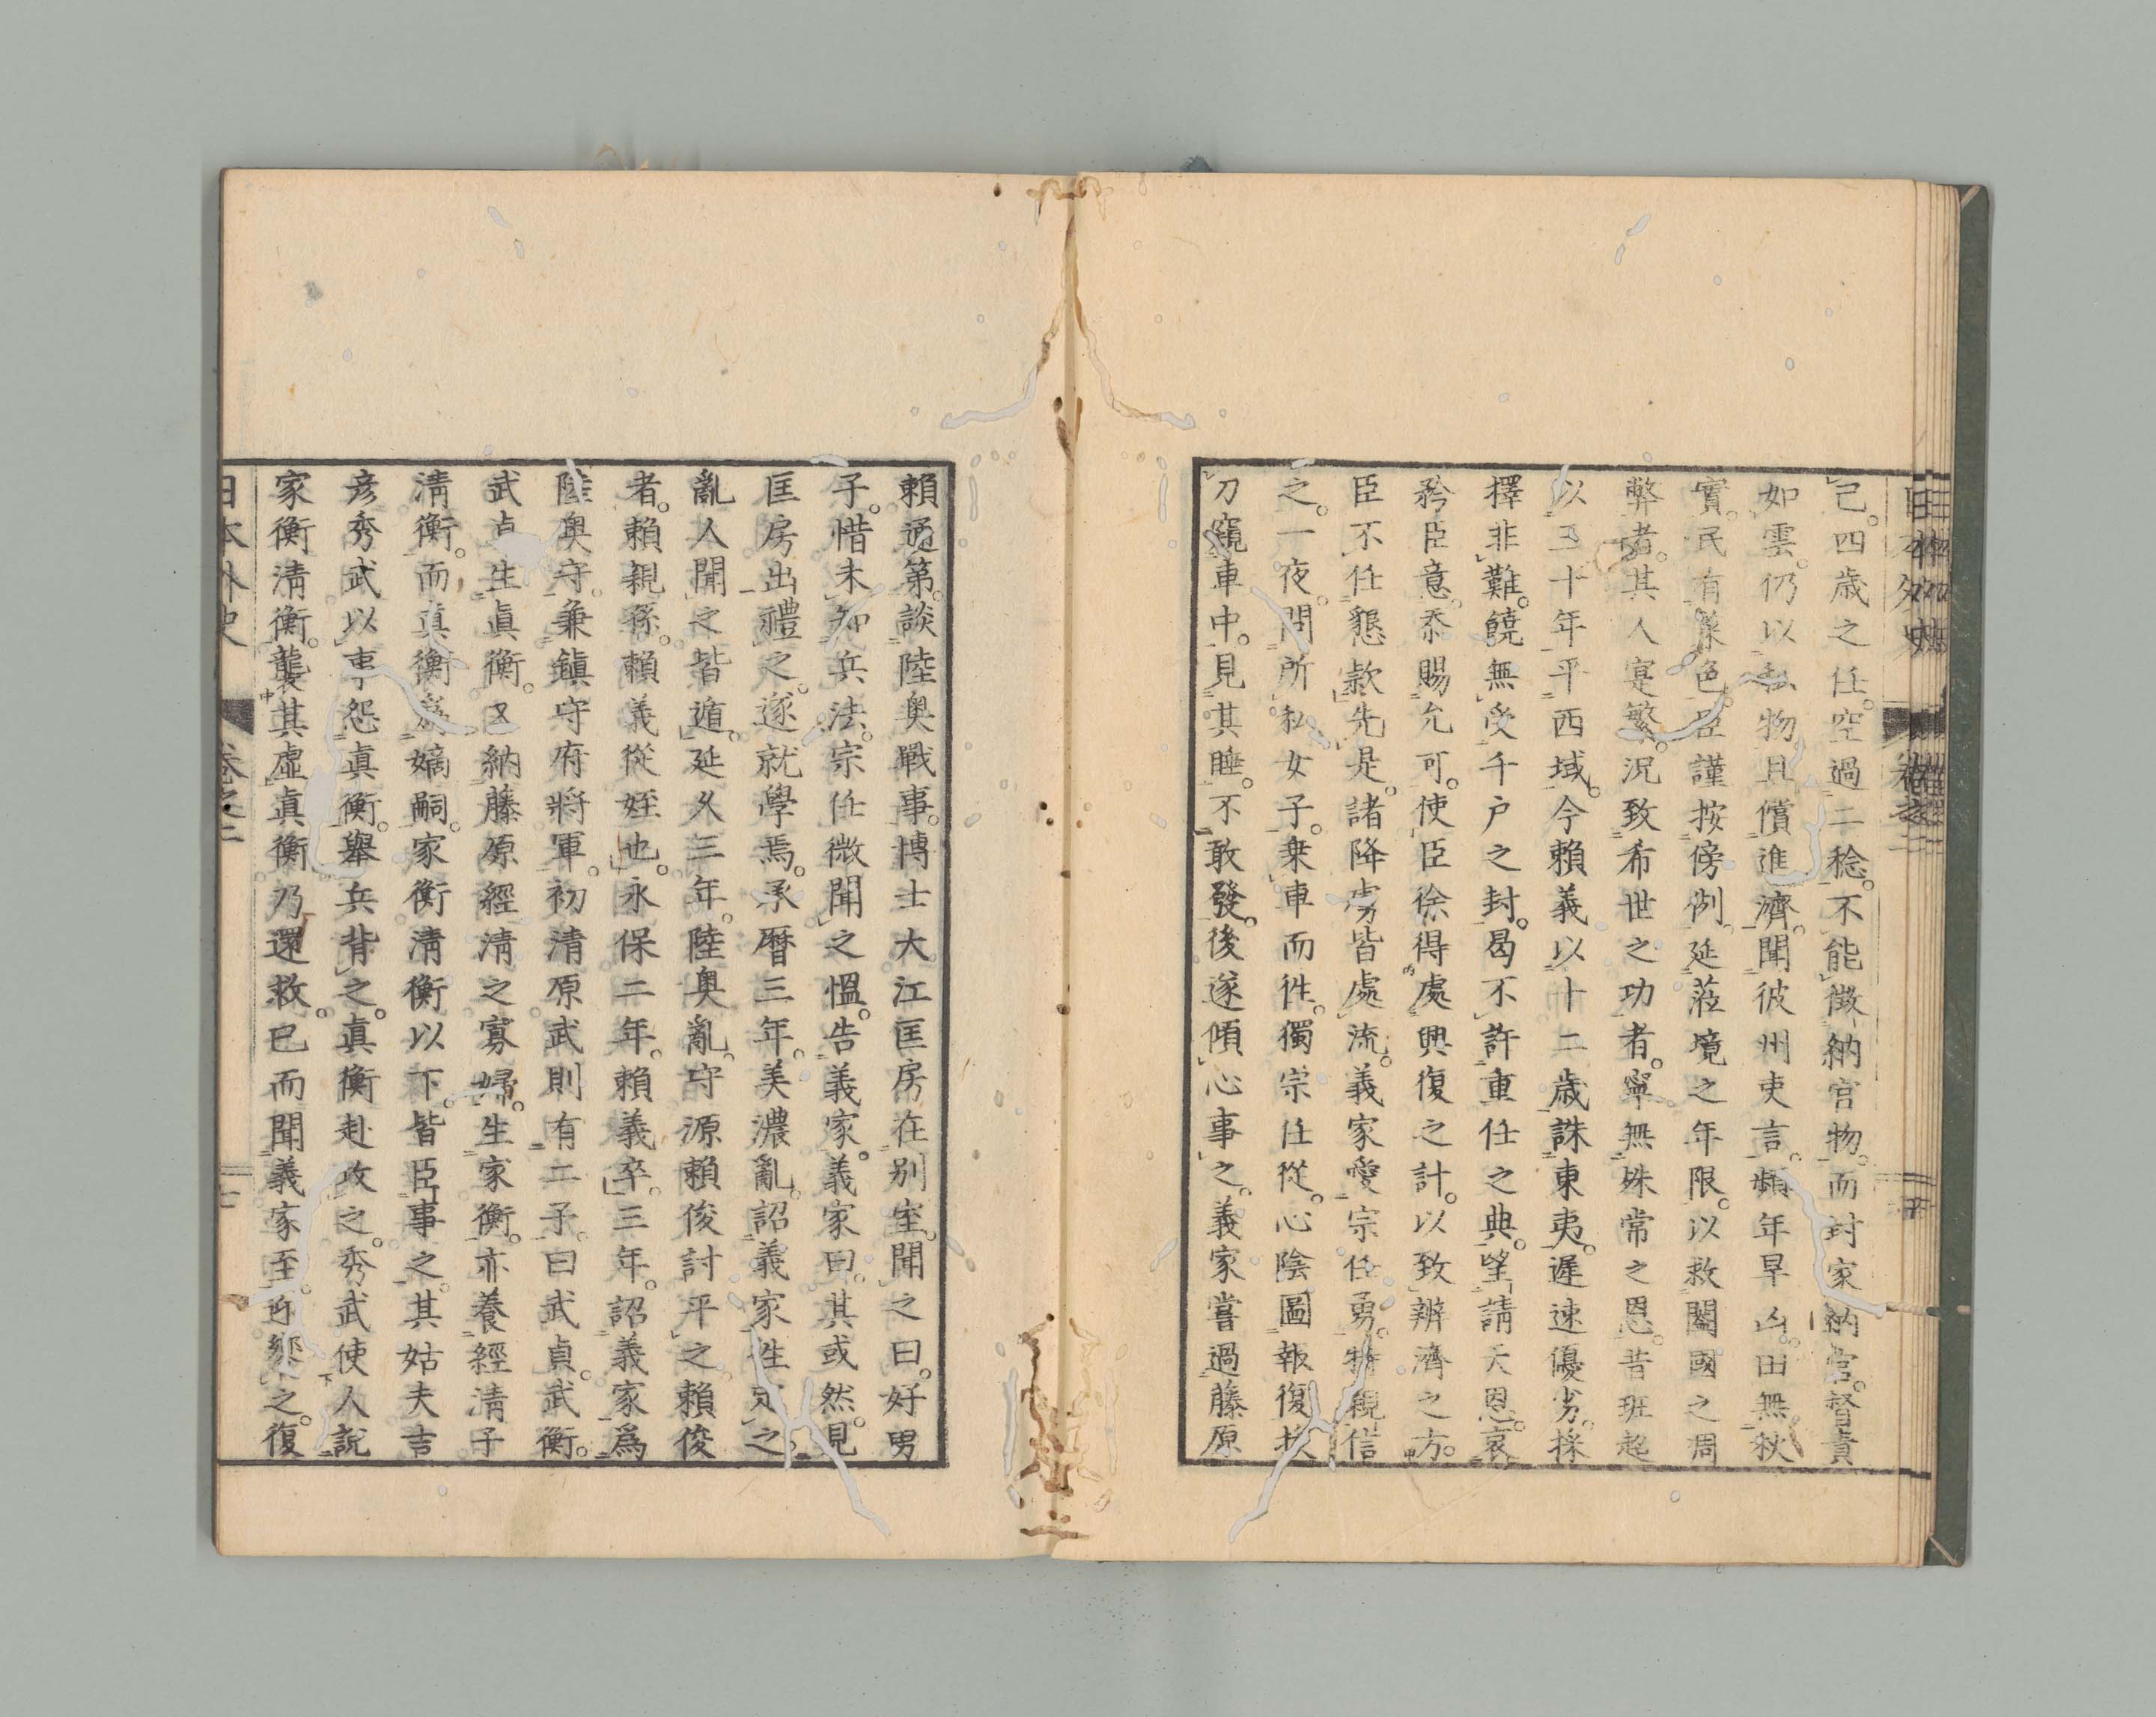 已。四歳之任。空過二稔。不能徴納官物。而封家納官。督責
如雲。仍以私物且償進濟。聞彼州吏言。頻年旱凶。田無秋
實。民有菜色。臣謹按傍例。延蒞境之年限。以救闔國之凋
弊者。其人寔繁。況致希世之功者。寧無殊常之恩。昔班超
以三十年平西域。今賴義以十二歳誅東夷。遲速優劣。採
擇非難。饒無受千戸之封。曷不許重任之典。望請天恩。哀
矜臣意。忝賜允可。使臣徐得處興復之計。以致辨濟之方。
臣不任懇款。先是。諸降虜皆處流。義家愛宗任勇。特親信
之。一夜。問所私女子。乗車而徃。獨宗任從。心陰圖報復。拔
刀窺車中。見其睡。不敢發。後遂傾心事之。義家嘗過藤原
賴通第。談陸奥戰事。博士大江匡房在别室。聞之曰。好男
子。惜未知兵法。宗任微聞之愠。告義家。義家曰。其或然。見
匡房出禮之。遂就學焉。承暦三年。美濃亂。詔義家徃定之。
亂人聞之皆遁。延久三年。陸奥亂。守源賴俊討平之。賴俊
者。賴親孫。賴義從姪也。永保二年。賴義卒。三年。詔義家爲
陸奥守。兼鎮守府將軍。初清原武則有二子。曰武貞。武衡。
武貞生眞衡。又納藤原經清之寡婦。生家衡。亦養經清子
清衡。而眞衡爲嫡嗣。家衡清衡以下。皆臣事之。其姑夫吉
彦秀武以事怨眞衡。舉兵背之。眞衡赴攻之。秀武使人説
家衡清衡。襲其虛。眞衡乃還救。已而聞義家至。迎饗之。復
日本外史 卷之二